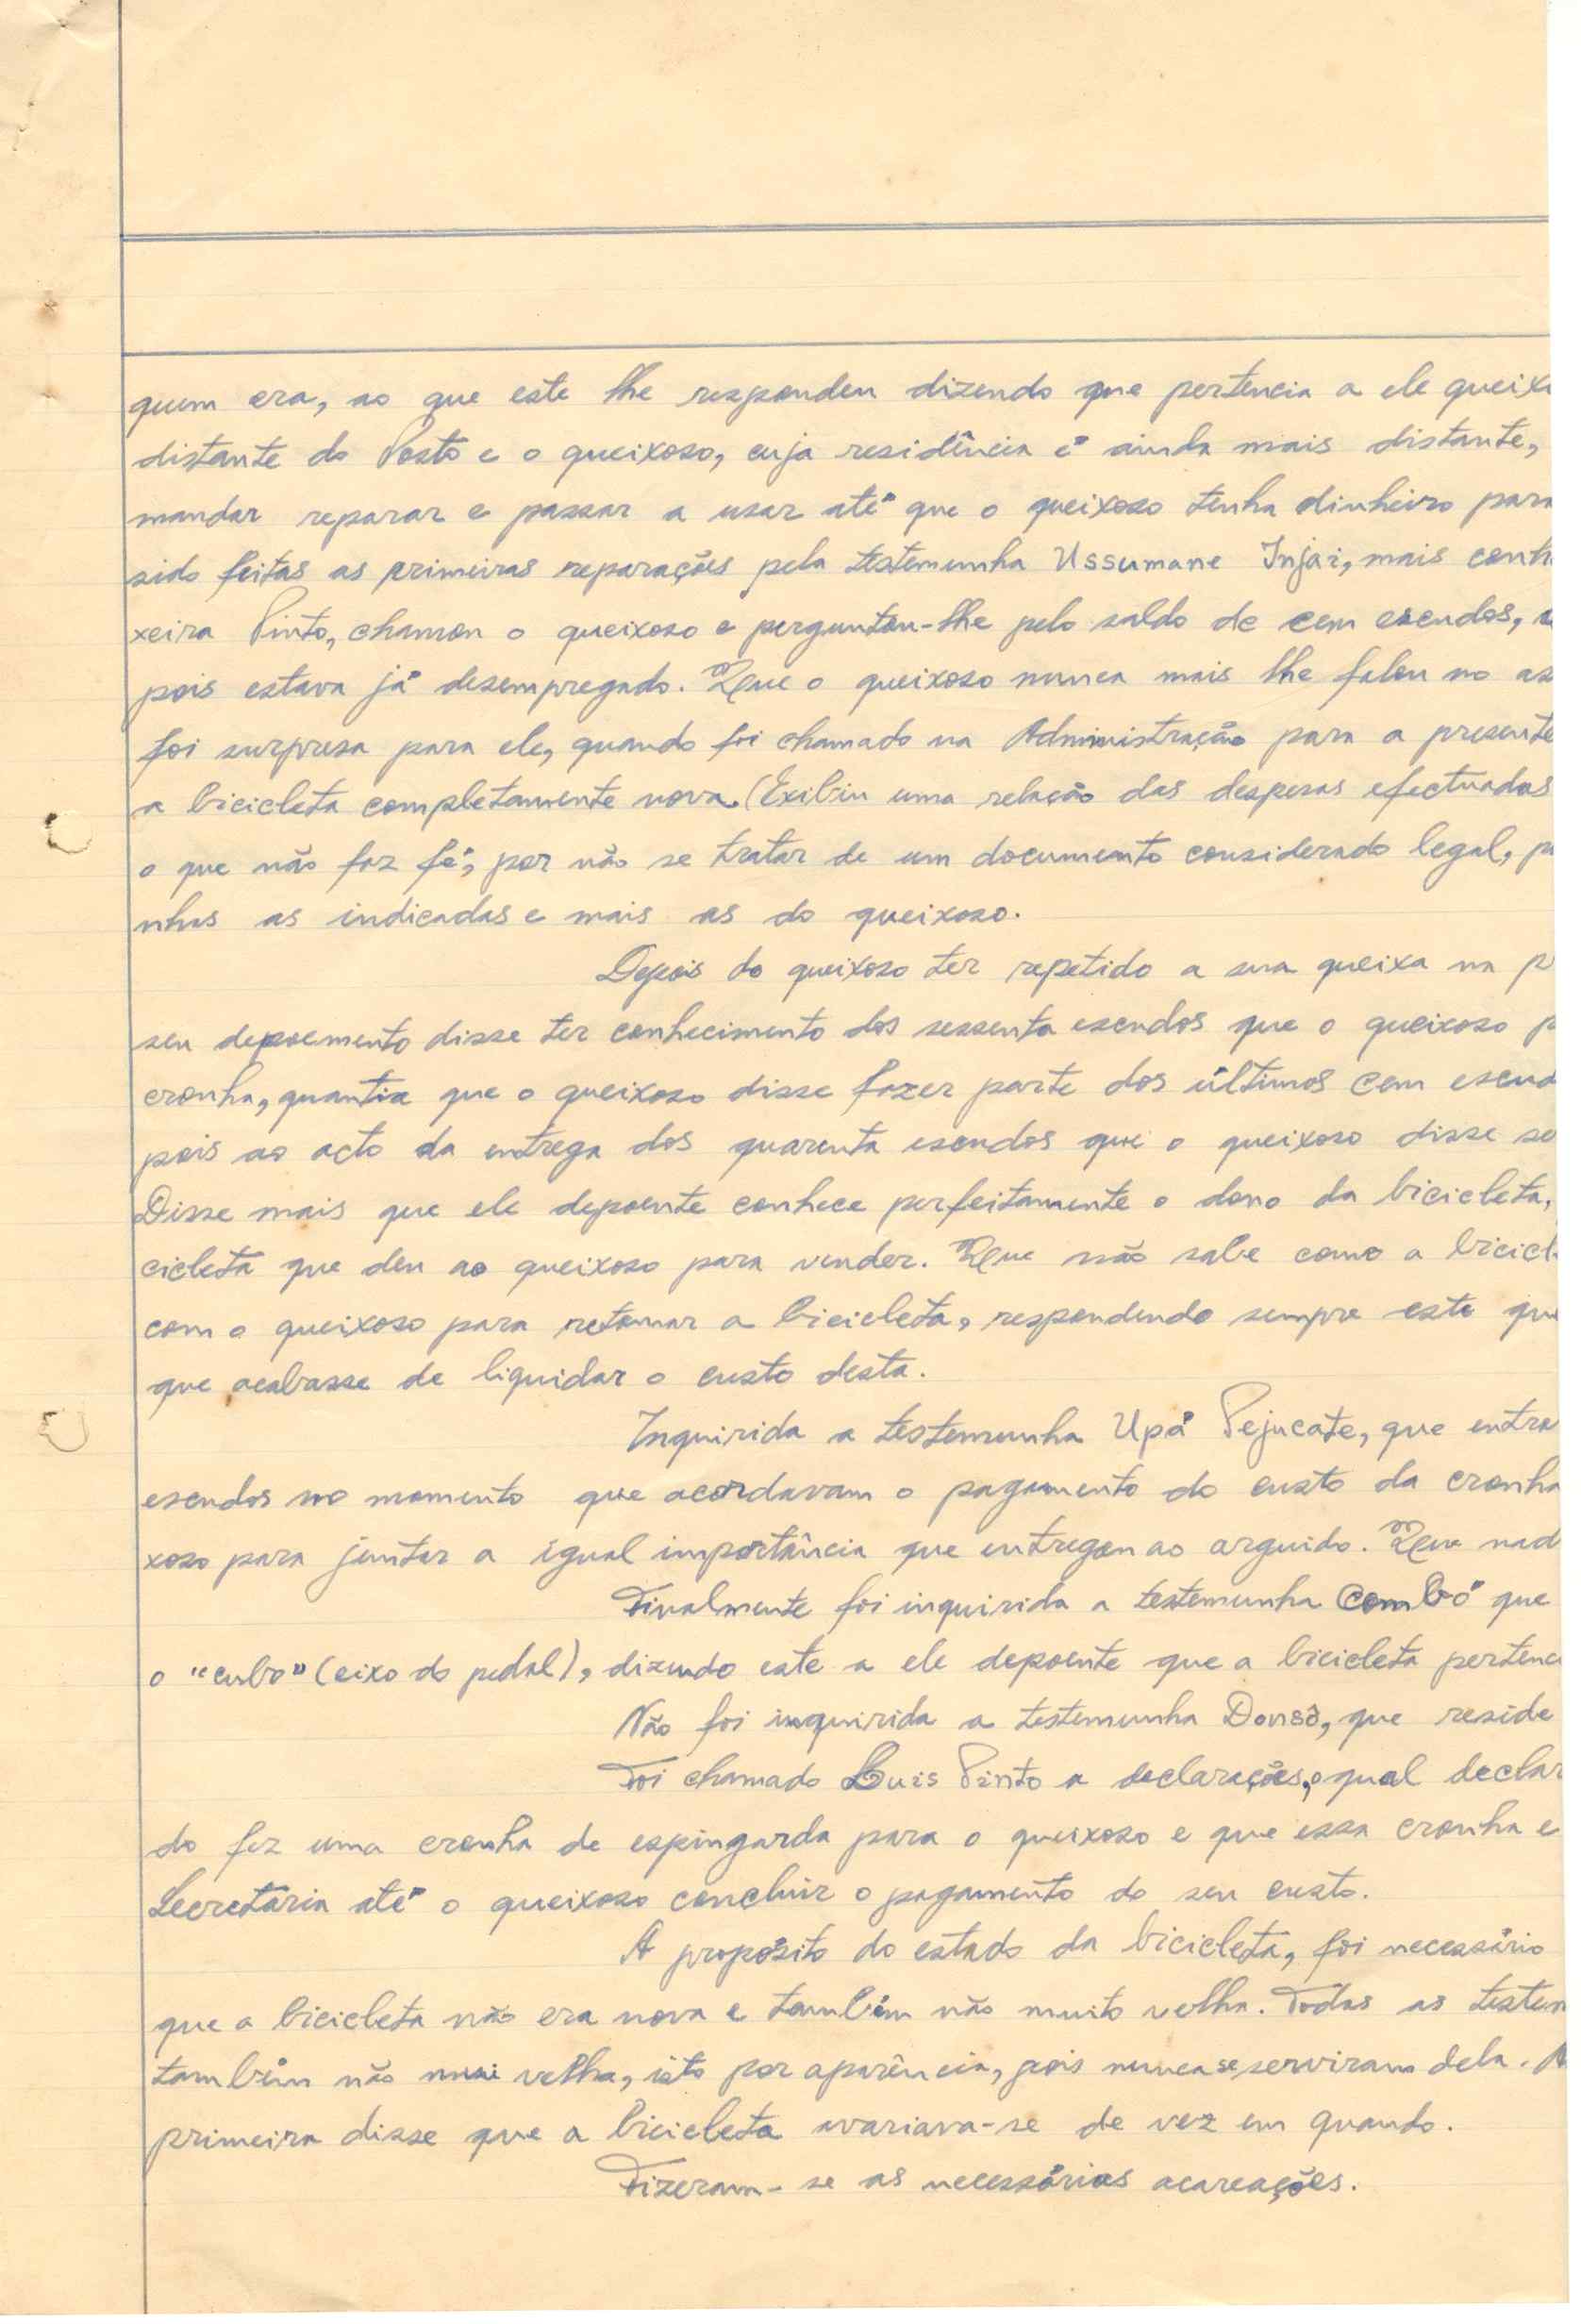 quem era, ao que este lhe respondeu dizendo que pertencia a ele queix
distante do Posto e o queixoso, cuja residência é ainda mais distante,
mandar reparar e passar a usar até que o queixoso tenha dinheiro para
sido feitas as primeiras reparações pela testemunha Ussumane Injai, mais conh
xeira Pinto, chamou o queixoso e perguntou-lhe pelo saldo de cem escudos,
pois estava já desempregado. Que o queixoso nunca mais lhe falou no as
foi surpresa para ele, quando foi chamado na Administração para a presente
a bicicleta completamente nova. (Exibiu uma relação das despesas efectuadas
o que não faz fé, por não se tratar de um documento considerado legal, p
nhas as indicadas e mais as do queixoso.
Depois do queixoso ter repetido a sua queixa na p
seu depoemento disse ter conhecimento dos sessenta escudos que o queixoso p
cronha, quantia que o queixoso disse fazer parte dos últimos cem escud
pois ao acto da entrega dos quarenta escudos que o queixoso disse se
Disse mais que ele depoente conhece perfeitamente o dono da bicicleta,
cicleta que deu ao queixoso para vender. Que não sabe como a bicicl
com o queixoso para retomar a bicicleta, respondendo sempre este que
que acabasse de liquidar o custo desta.
Inquirida a testemunha Upá Pejucate, que entre
escudos no momento que acordavam o pagamento do custo da cronha
xoso para juntar a igual importância que entregou ao arguido. Que nad
Finalmente foi inquirida a testemunha Combó que
o "cubo" (eixo do pedal), dizendo este a ele depoente que a bicicleta pertenc
Não foi inquirida a testemunha Donsô, que reside
Foi chamado Luis Pinto a declarações, o qual declar
do fez uma cronha de espingarda para o queixoso e que essa cronha e
Secretária até o queixoso concluir o pagamento do seu custo.
A propósito do estado da bicicleta, foi necessário
que a bicicleta não era nova e também não muito velha. Todas as testem
também não mui velha, isto por aparência, pois nunca se serviram dela. A
primeira disse que a bicicleta avariava-se de vez em quando.
Fizeram-se as necessárias acareações.